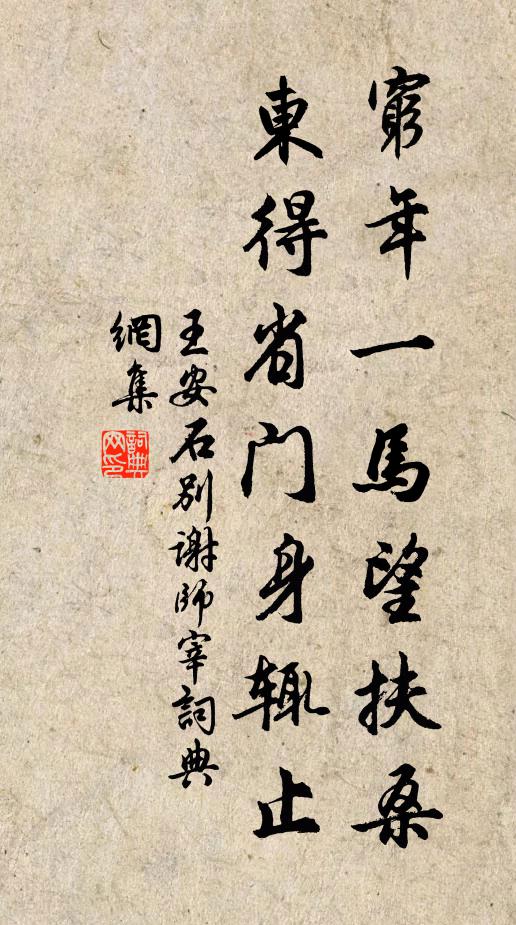 窮年一馬望扶桑
東得省門身辄止
王安石別谢師宰詞典
網集
詞典
网印